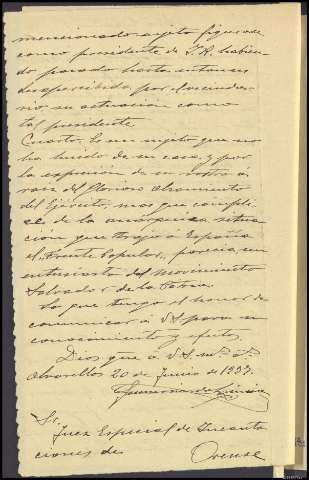 mencionado sujeto figurase
como presidente de I.R. habien
do pasado hasta entonces
desapercibida por el vecinda-
rio su actuación como
tal presidente
Cuarto. Es un sujeto que no
ha huido de su casa, y por
la expresión de su rostro á
raiz del Glorioso Alzamiento
del Ejército, mas que cómpli-
ce de la anárquica situa-
ción que trajo á España
el "Frente Popular", parecía un
entusiasta del Movimiento
Salvador de la Patria.
Lo que tengo el honor de
comunicar á V.S. para su
conocimiento y efectos.
Dios gue á V.S. ms. as.
20 de Junio de 1937.
Sr.
Juez Especial de Incauta
ciones de Orense